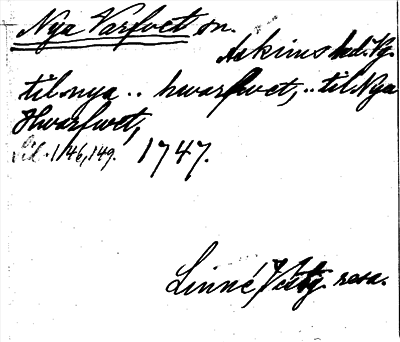 Nya Varfvet on.
Askims hd. Vg.
til nya .. hwarfwet, .. til Nya
Hwarfwet,
Sid. 146, 149. 1747.
Linné, Västg. resa.